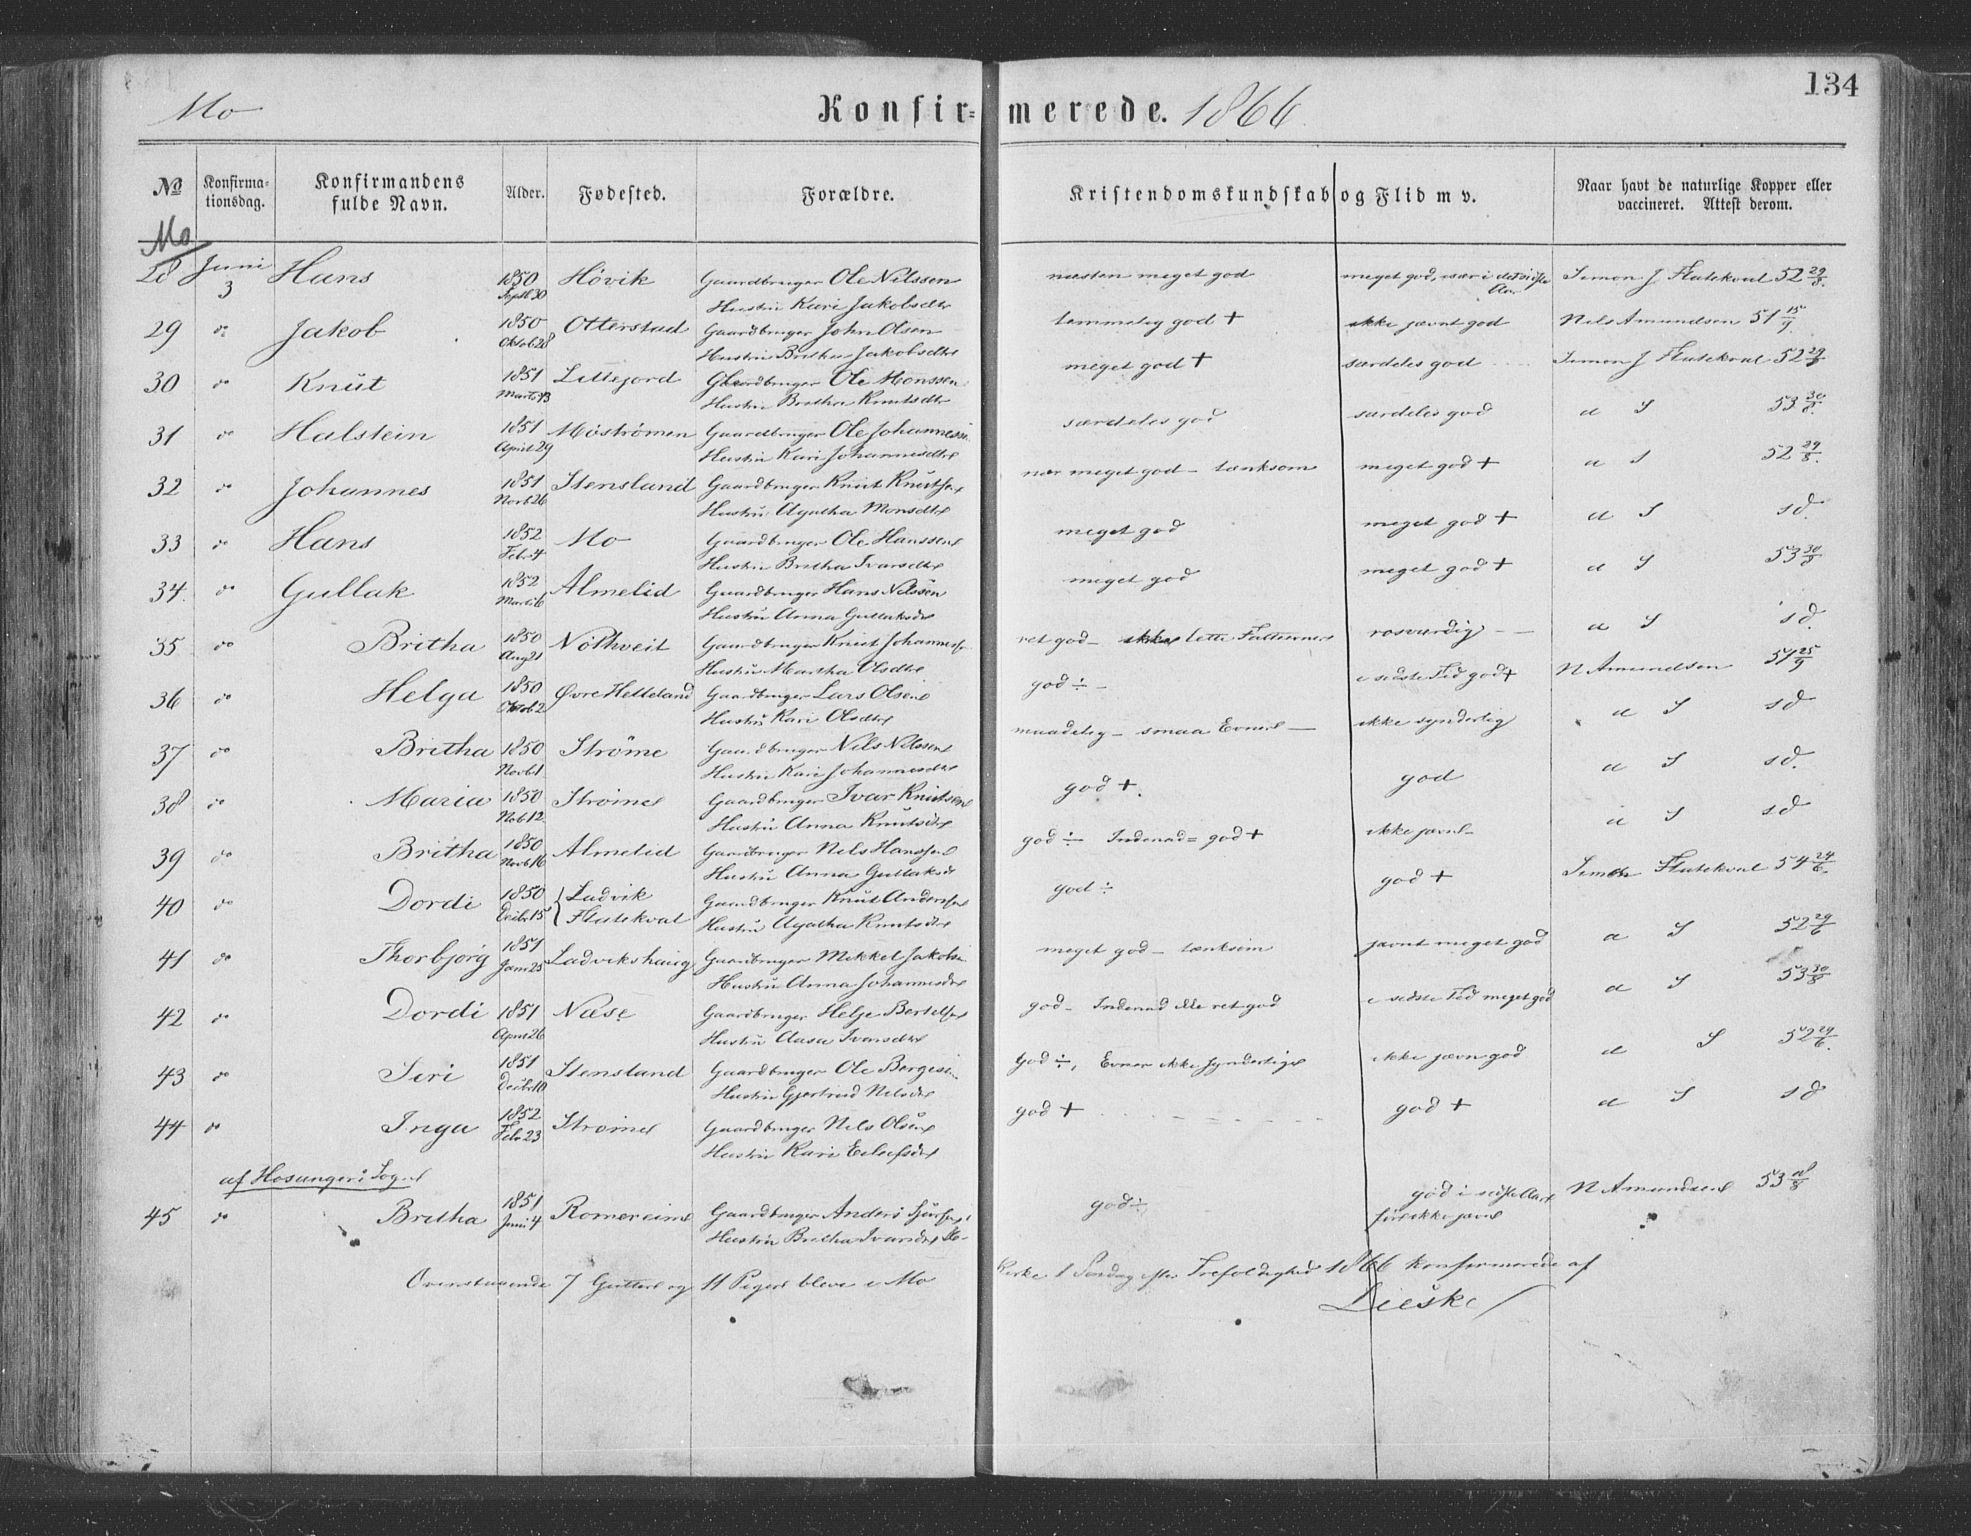 134
Mo Konfirmerede. 1866
№ Konfirmationsdag. Konfirmandens fulde Navn. Alder. Fødested. Forældre. Kristendomskundskab og Flid m v. Naar havt de naturlige Kopper eller vaccineret. Attest derom.
Mo
28 Juni 3 Hans 1850 Septb 30 Hövik Gaardbruger Ole Nilssen næsten meget god meget god, især i det sidste Aar Simon J Flatekval 52 29/8.
Hustru Kari Jakobsdtr
29 do Jakob 1850 Oktob 28 Otterstad Gaardbruger John Olsen temmelig god + ikke jævnt god Nils Amundsen 51 15/9
Hustru Britha Jakobsdtr
30 do Knut 1851 Marts 13 Littejord Gaardbruger Ole Monssen meget god + særdeles god Simon J Flatekval 52 29/8
Hustru Britha Knutsdtr
31 do Halstein 1851 April 29 Móströmen Gaardbruger Ole Johannesen særdeles god særdeles god a S 53 30/8.
Hustru Kari Johannesdtr
32 do Johannes 1851 Novb 26 Stensland Gaardbruger Knut Knutsen nær meget god - tænksom meget god + a S 52 29/8.
Hustru Agatha Monsdtr
33 do Hans 1852 Febr 4 Mo Gaardbruger Ole Hanssen meget god meget god + a S sd.
Hustru Britha Ivarsdtr
34. do Gullak 1852 Marts 6 Almelid Gaardbruger Hans Nilssen meget god meget god + a S 53 30/8
Hustru Anna Gullaksdr
35 do Britha 1850 Aug 21 Nöthveit Gaardbruger Knut Johannesen ret god - ikke lette Fatteevner rosværdig - a S sd.
Hustru Martha Olsdtr
36 do Helga 1850 Oktob 2 Øvre Helleland Gaardbruger Lars Olsen god ÷ - i sidste Tid god + N Amundsen 51 25/9
Hustru Kari Olsdtr
37 do Britha 1850 Novb 1 Ströme Gaardbruger Nils Nilssen maadelig - smaa Evner - ikke synderlig a S sd
Hustru Kari Johannesdtr
38 do Maria 1850 Nob 12 Strömel Gaardbruger Ivar Knutsen god +. god a S sd.
Hustru Anna Knutsdtr
39 do Britha 1850 Novb 16 Almelid Gaardbruger Nels Hanssen god ÷ Indenad = god + ikke jævn - a S sd
Hustru Anna Gullaksdr
40 do Dordi 1850 Decbr 15 Ladvik Flatekval Gaardbruger Knut Andersen god ÷ god + Simon Flatekval 54 24/6.
Hustru Agatha Knutsdtr
41 do Thorbjørg 1851 Jan 25 Ladvikshaug Gaardbruger Mikkel Jakobsen meget god - tænksom jævnt meget god a S 52 29/6
Hustru Anna Johannesdtr
42 do Dordi 1851 April 26 Næse Gaardbruger Helje Bertelsen god - Indenad ikke ret god i sidste Tid meget god a S 53 30/8
Hustru Aasa Ivarsdtr
43 do Siri 1851 Decbr 10 Stensland Gaardbruger Ole Bergesen god ÷, Evner ikke synderlige ikke jævn god a S 52 29/6.
Hustru Gjertrud Nelsdtr
44 do Inga 1852 Febr 23 Strömel Gaardbruger Nels Olsen god + god + a S sd
Hustru Kari Eilefsdtr
af Hosanger Sogn
45 do Britha 1851 Juni 4 Romereim Gaardbruger Anders god ÷ god i sidste Aar før ikke jævn N Amundsen 53 /8
Hustru Britha Ivarsdtr
Ovenstaaende 7 Gutter og 11 Piger bleve i Mo Kirke 1 Søndag efter Trefoldighed 1866 konfirmerede af
Lieske